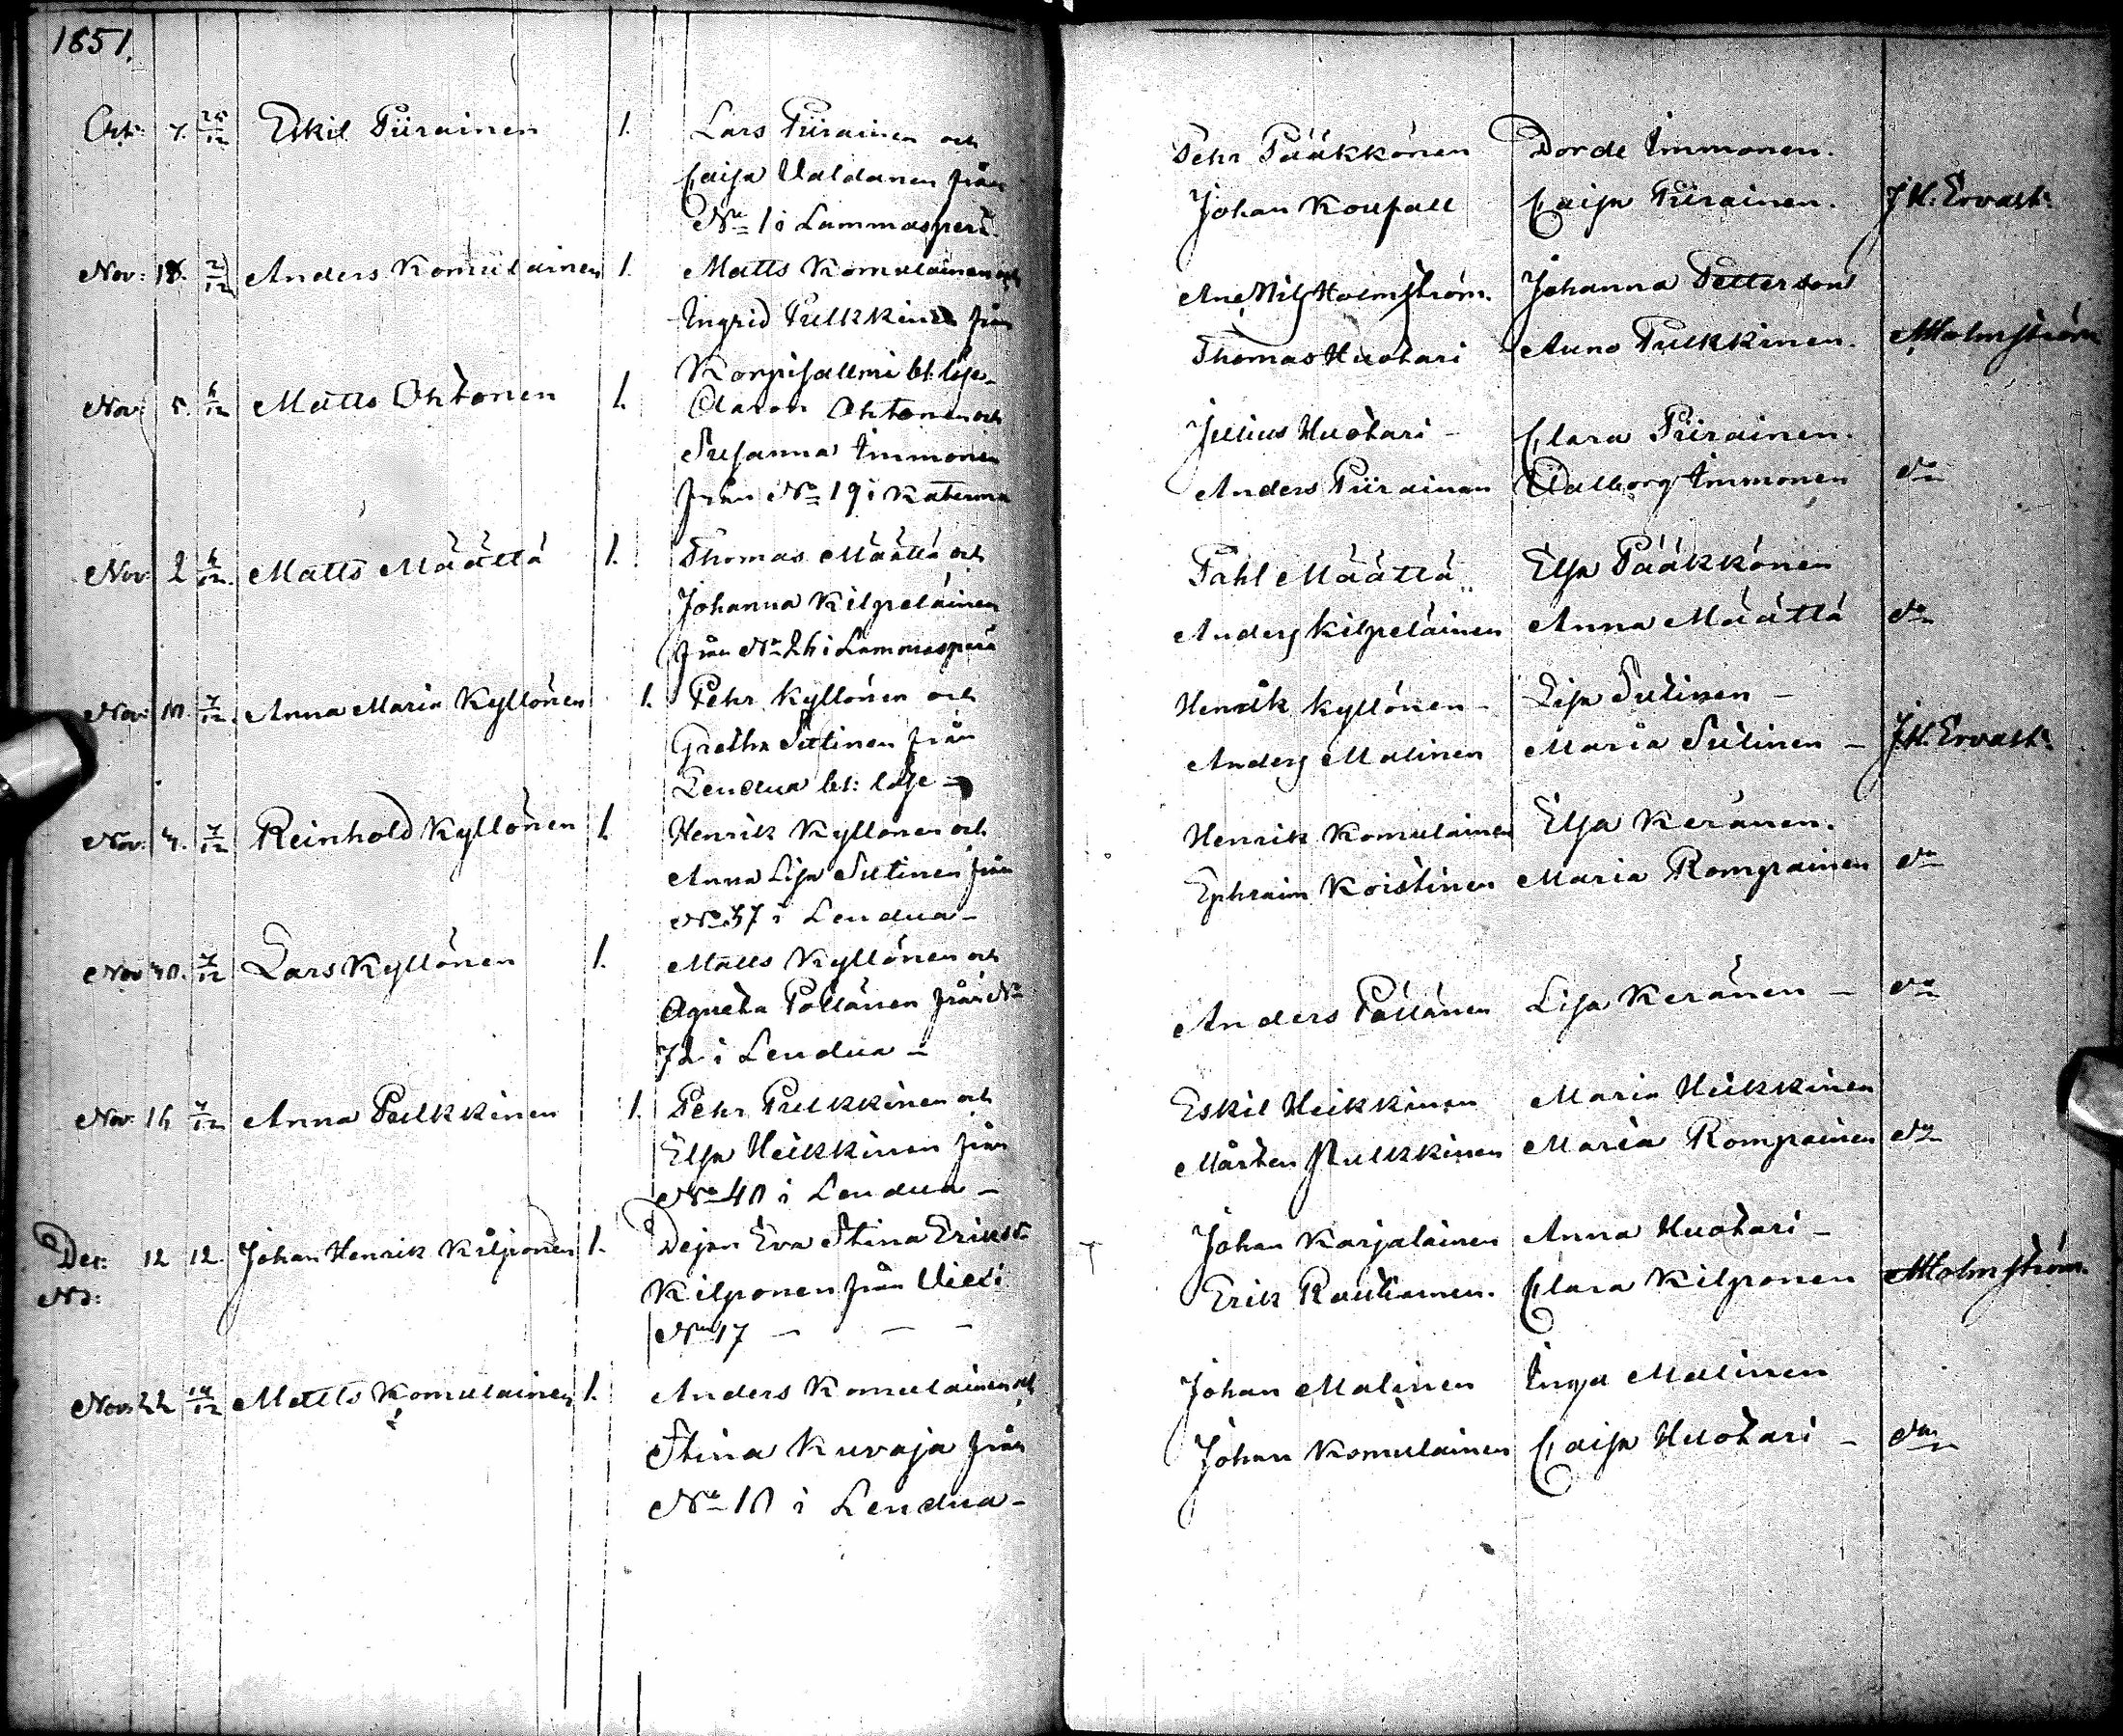 1851.
Oct: 7. 25/12 Eskil Piirainen 1. Lars Piirainen och
Caisa Valdanen från
No 1 i Lammasperä
Pehr Pääkkönen Dorde Immonen.
Johan Caisa Piirainen. J H: Ervast:
Nov: 18. 2/12 Anders Komulainen 1. Matts Komulainen och
Ingrid Pulkkinen från
Korpisallmi bt: löse
And Nils Holmström. Johanna Petterson
Thomas Huotari Auno Pulkkinen. AHolmström
Nov: 5. 6/12 Matts Ohtonen 1. Aaron Ohtonen och
Susanna Immonen
från No 19 i Katerma
Julius Huotari - Clara Piirainen.
Anders Piirainen Valborg Immonen do
Nov: 2 6/12. Matts Määttä 1. Thomas Määttä och
Johanna Kilpeläinen
från No 26 i Lammasperä
Påhl Määttä Elsa Pääkkönen
Anders Kilpeläinen Anna Määttä do
Nov: 10. 7/12. Anna Maria Kyllönen 1. Pehr Kyllönen och
Gretha Sutinen från
Lendua bt: löse
Henrik Kyllönen - Lisa Sutinen -
Anders Malinen Maria Sutinen - J H. Ervast:
Nov: 7. 7/12 Reinhold Kyllönen 1. Henrik Kyllönen och
Anna Lisa Sutinen från
No 37 i Lendua -
Henrik Komulainen Elsa Keränen.
Ephraim Koistinen Maria Rompainen do
Nov 30. 7/12 Lars Kyllönen 1. Matts Kyllönen och
Agneta Pöllänen från No
72 i Lendua -
Anders Pöllänen Lisa Keränen - do
Nov: 16 7/12 Anna Pulkkinen 1. Pehr Pulkkinen och
Elsa Heikkinen från
No 40 i Lendua -
Eskil Heikkinen Maria Heikkinen
Mårten Pulkkinen Maria Rompainen do
Dec: 12 12. Johan Henrik Kilponen 1. Dejan Eva Stina Ericsdr
No: Kilponen från Vieki
No 17 - - -
Johan Karjalainen Anna Huotari -
Erik Rautiainen. Clara Kilponen AHolmström.
Nov: 22 14/12 Matts Komulainen 1. Anders Komulainen och
Stina Kuvaja från
No 10 i Lendua -
Johan Malinen Inga Malinen
Johan Komulainen Caisa Huotari - do